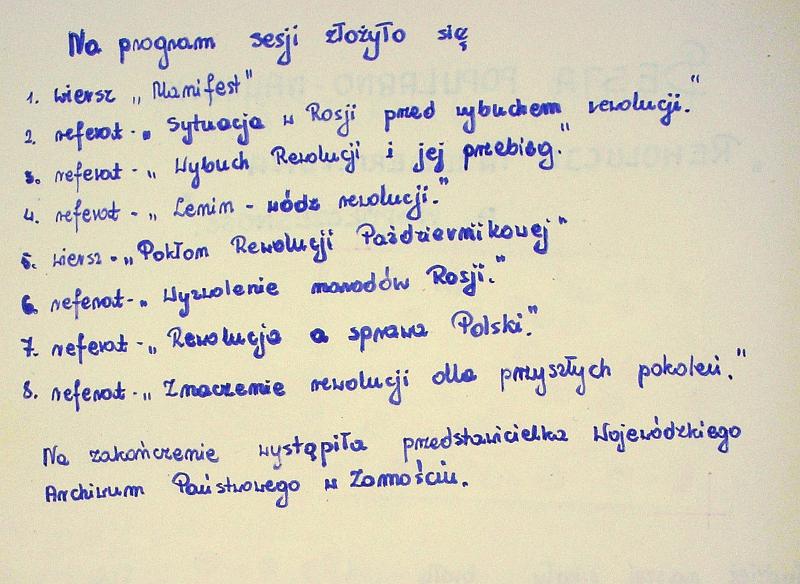 Na program sesji złożyło się
1. wiersz „Manifest"
2. referat - „Sytuacja w Rosji przed wybuchem rewolucji."
3. referat - „Wybuch Rewolucji i jej przebieg."
4. referat - „Lenin - wódz rewolucji."
5. wiersz - „Pokłom Rewolucji Październikowej"
6. referat - „Wyzwolenie narodów Rosji."
7. referat - „Rewolucja a sprawa Polski."
8. referat - „Znaczenie rewolucji dla przyszłych pokoleń."
Na zakończenie wystąpiła przedstawicielka Wojewódzkiego
Archiwum Państwowego w Zamościu.